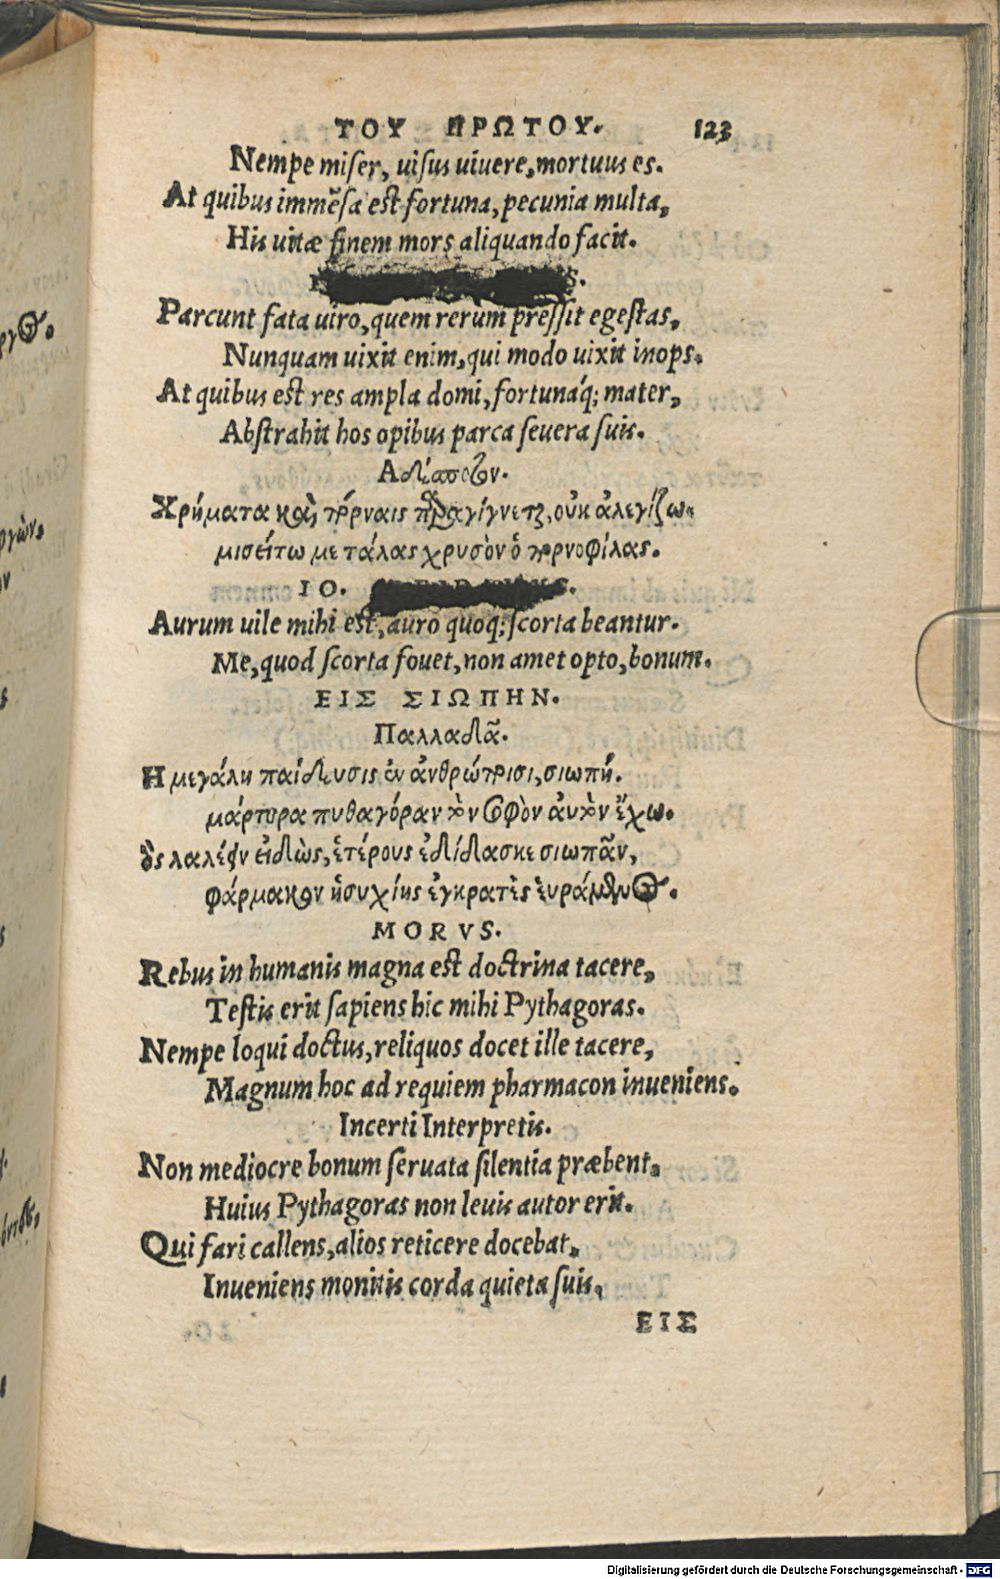 ΤΟΥ ΠΡΩΤΟΥ. 123
Nempe miser, uisus uiuere, mortuus es.
At quibus immẽsa est fortuna, pecunia multa,
His uitæ finem mors aliquando facit.
Parcunt fata uiro, quem rerum pressit egestas,
Nunquam uixit enim, qui modo uixit inops.
At quibus est res ampla domi, fortunaq́; mater,
Abstrahit hos opibus parca seuera suis.
Ἀδέσποτον.
Χρήματα καὶ πόρναις παραγίγνεται, οὐκ ἀλεγίζω.
μισείτω με τάλας χρυσὸν ὁ πορνοφίλας.
IO.
Aurum uile mihi est, auro quoq; scorta beantur.
Me, quod scorta fouet, non amet opto, bonum.
ΕΙΣ ΣΙΩΠΗΝ.
Παλλαδᾶ.
Η μεγάλη παίδευσις ἐν ἀνθρώποισι, σιωπή.
μάρτυρα πυθαγόραν τὸν σοφὸν αὐτὸν ἔχω.
ὃς λαλέειν εἰδὼς, ἑτέρους ἐδίδασκε σιωπᾶν,
φάρμακον ἡσυχίης ἐγκρατὲς εὑράμενος.
MORVS.
Rebus in humanis magna est doctrina tacere,
Testis erit sapiens hic mihi Pythagoras.
Nempe loqui doctus, reliquos docet ille tacere,
Magnum hoc ad requiem pharmacon inueniens.
Incerti Interpretis.
Non mediocre bonum seruata silentia præbent,
Huius Pythagoras non leuis autor erit.
Qui fari callens, alios reticere docebat,
Inueniens monitis corda quieta suis,
ΕΙΣ
Digitalisierung gefördert durch die Deutsche Forschungsgemeinschaft - DFG